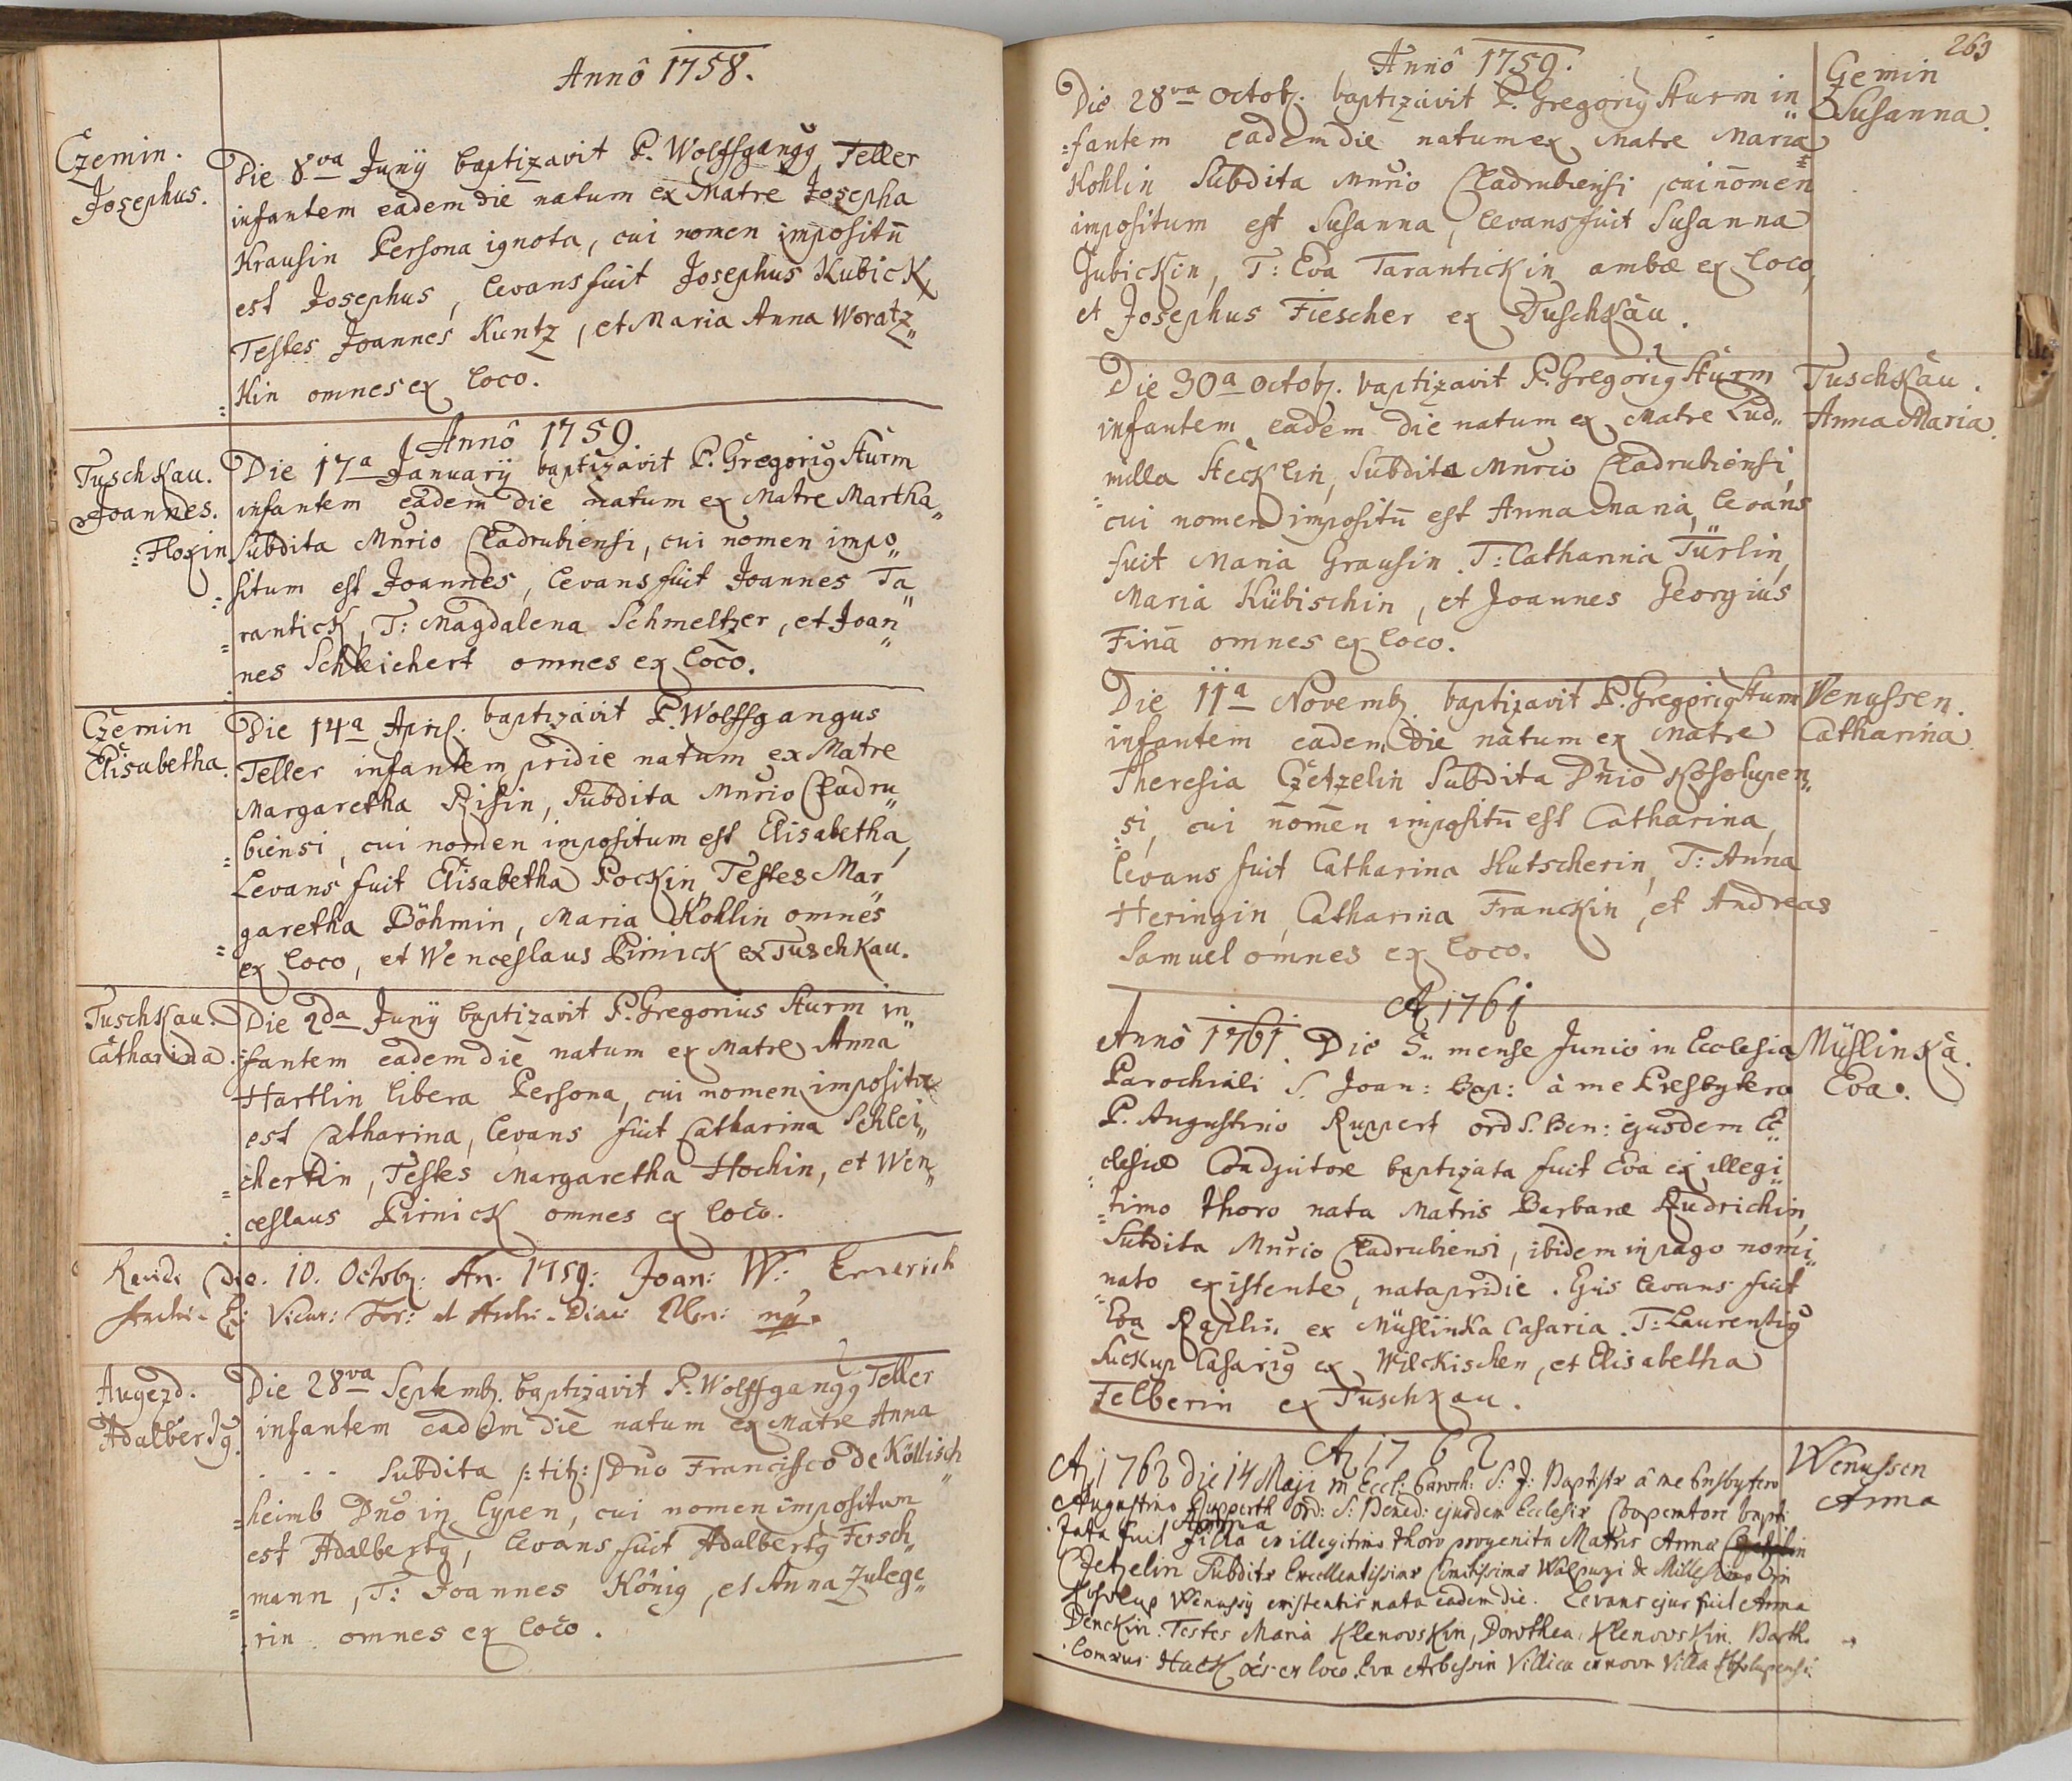 Annô 1758.
Czemin.
Josephus.
Die 8va Junÿ baptizavit P. Wolffgangg Teller
infantem eadem die natum ex Matre Josepha
Krausin Persona ignota, cui nomen impositū
est Josephus, levans fuit Josephus Kubick,
Testes Joannes Kuntz, et Maria Anna Woratz„
Kin omnes ex loco.
Annô 1759.
Tuschkau.
Joannes.
Die 17a Januarÿ baptizavit P. Gregorig Sturm
infantem eadem die natum ex Matre Martha„
=Floxin Subdita Mnrio Cladrubiensi, cui nomen impo„
=situm est Joannes, levans fuit Joannes Ta„
=rantick, T: Magdalena Schmeltzer, et Joan„
nes Schleichert omnes ex loco.
Czemin
Elisabetha.
Die 14a April: baptizavit P. Wolffgangus
Teller infantem pridie natum ex Matre
Margaretha Risin, Subdita Mnrio Cladru„
=biensi, cui nomen impositum est Elisabetha,
Levans fuit Elisabetha Pockin, Testes Mar„
garetha Böhmin, Maria Kohlin omnes
=ex loco, et Wenceslaus Pirnick ex Tuschkau.
Tuschkau.
Catharina.
Die 2da Junÿ baptizavit P. Gregorius Sturm in„
=fantem eadem die natum ex Matre Anna
Hartlin libera Persona, cui nomen impositū
est Catharina, levans fuit Catharina Schlei„
=chertin, Testes Margaretha Hochin, et Wen„
=ceslaus Pirnick omnes ex loco.
die. 10. Octobr: An. 1759: Joan: W: Emerich
Vicar: For: et
Augezd.
Adalbertg.
Die 28va Septemb. baptizavit P. Wolffgangg Teller
infantem eadem die natum ex Matre Anna
. . . Subdita /: tit: / Dno Francisco de Köllisch„
=heimb Dno in Lypen, cui nomen impositum
est Adalbertg, levans fuit Adalbertg Fersch„
=mann, T: Joannes König, et Anna Zulege„
=rin omnes ex loco.
263
Annô 1759.
Czemin
Susanna.
Die 28va Octob. baptizavit P. Gregorig Sturm in„
=fantem eadem die natum ex Matre Maria
Kohlin Subdita Mnrio Cladrubiensi, cui nomen
impositum est Susanna, levans fuit Susanna
Gubickin, T: Eva Tarantickin ambæ ex loco,
et Josephus Fiescher ex Tuschkau.
Tuschkau.
Anna Maria.
Die 30a Octob. baptizavit P. Gregorig Sturm
infantem eadem die natum ex Matre Lud„
milla Stecklin, Subdita Mnrio Cladrubiensi,
=cui nomen impositū est Anna Maria, levans
fuit Maria Grausin. T: Catharina Türlin,
Maria Kübischin, et Joannes Georgius
Finā omnes ex loco.
Wenussen.
Catharina
Die 11a Novemb. baptizavit P. Gregorig Sturm
infantem eadem die natum ex Matre
Theresia Czetzelin Subdita Dnio Kosolupen„
=si, cui nomen impositū est Catharina,
levans fuit Catharina Kutscherin, T: Anna
Heringin, Catharina Franckin, et Andreas
Samuel omnes ex loco.
A 1761
Müslinka.
Eva.
Anno 1761. Die 5.. mense Junio in Ecclesia
Parochiali S. Joan: Bap: à me Presbytero
P. Augustino Ruppert ord S. Ben: ejusdem Ec„
=clesiæ Coadjutore baptizata fuit Eva ex illegi„
=timo thoro nata Matris Barbaræ Rudrichin,
Subdita Mnrio Cladrubiensi, ibidem in pago nomi„
=nato existente, nata pridie. Ejus levans fuit
Eva Raplin ex Müslinka Casaria. T: Laurentig
Suckup Casarig ex Wilckischen, et Elisabetha
Felberin ex Tuschkau.
A 1762
Wenussen
Anna
A 1762 die 14 Maji in Eccl: Paroch: S: J: Baptistæ â me Presbytero
Augustino Rupperth Ord: S: Bened: ejusdem Ecclesiæ Cooperatore bapti
zata fuit Anna filia ex illegitimo thoro progenita Matris Annæ
Czetzelin Subditæ Excellentissimæ Comitissimæ Walpurgi de Millesimo in
Kosolup Wenussÿ existentis nata eadem die. Levans ejus fuit Anna
Denckin. Testes Maria Klenovskin, Dorothea Klenovskin. Barth
lomæus Hack oēs ex loco. Eva Arbessin Villica ex nova Villa Kosolupensi